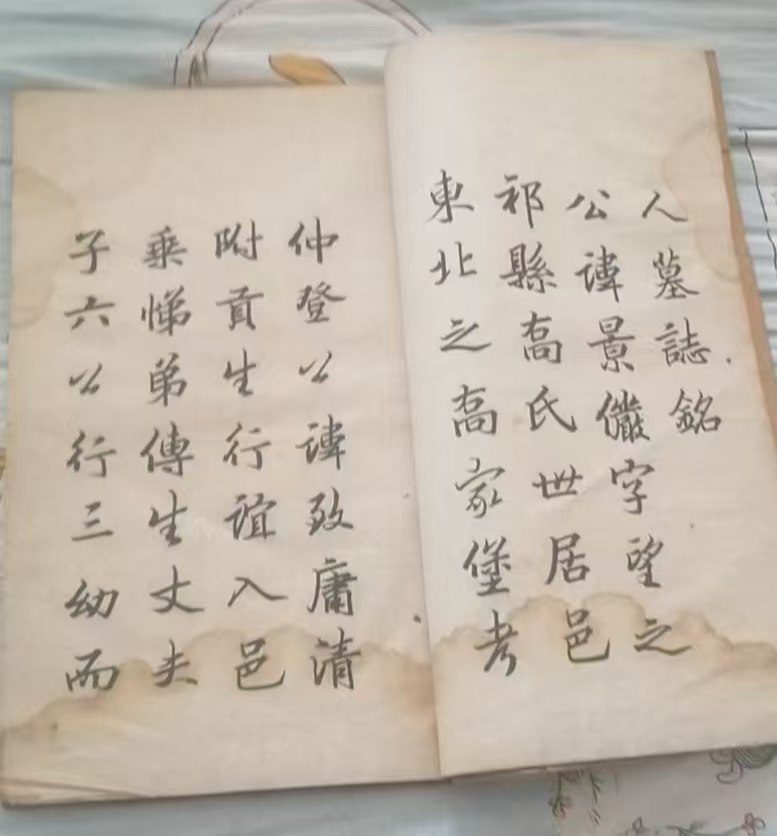 人墓誌銘
公諱景儼字望之
祁縣高氏世居邑
東北之高家堡考
仲登公諱致庸清
附貢生行誼入邑
乘悌弟傳生丈夫
子六公行三幼而